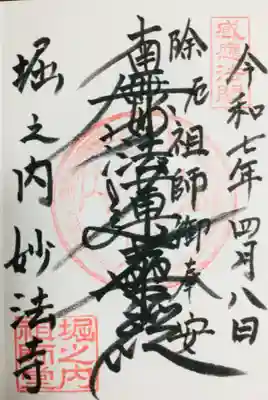 令和七年四月八日
除厄祖師御奉安
南無妙法蓮華經
堀之内妙法寺
感應法閣
堀之内
祖師堂